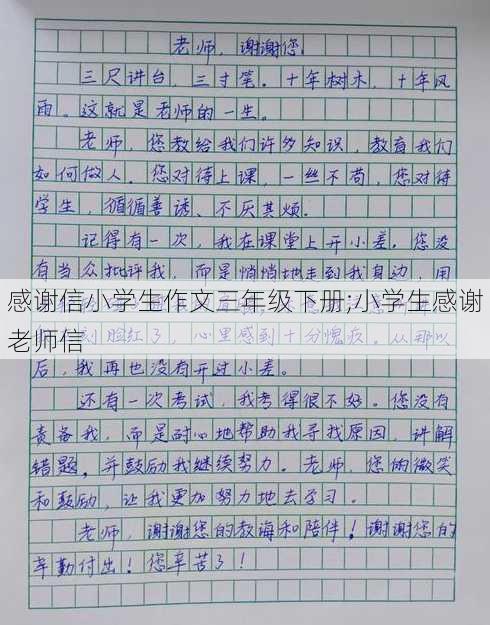 老师，谢谢您
三尺讲台，三寸笔。十年树木，十年风
雨。这就是老师的一生。
老师，您教给我们许多知识，教育我们
如何做人。您对待上课，一丝不苟，您对待
学生，循循善诱、不厌其烦。
记得有一次，我在课堂上开小差。您没
有当众批评我，而是悄悄地走到我身边，用
感谢信小学生作文三年级下册;小学生感谢
老师信
刻脸红了，心里感到十分愧疚。从那以
后，我再也没有开过小差。
还有一次考试，我考得很不好。您没有
责备我，而是耐心地帮助我寻找原因，讲解
错题，并鼓励我继续努力。老师，您的微笑
和鼓励，让我更加努力地去学习。
老师，谢谢您的教诲和陪伴！谢谢您的
辛勤付出！您辛苦了！